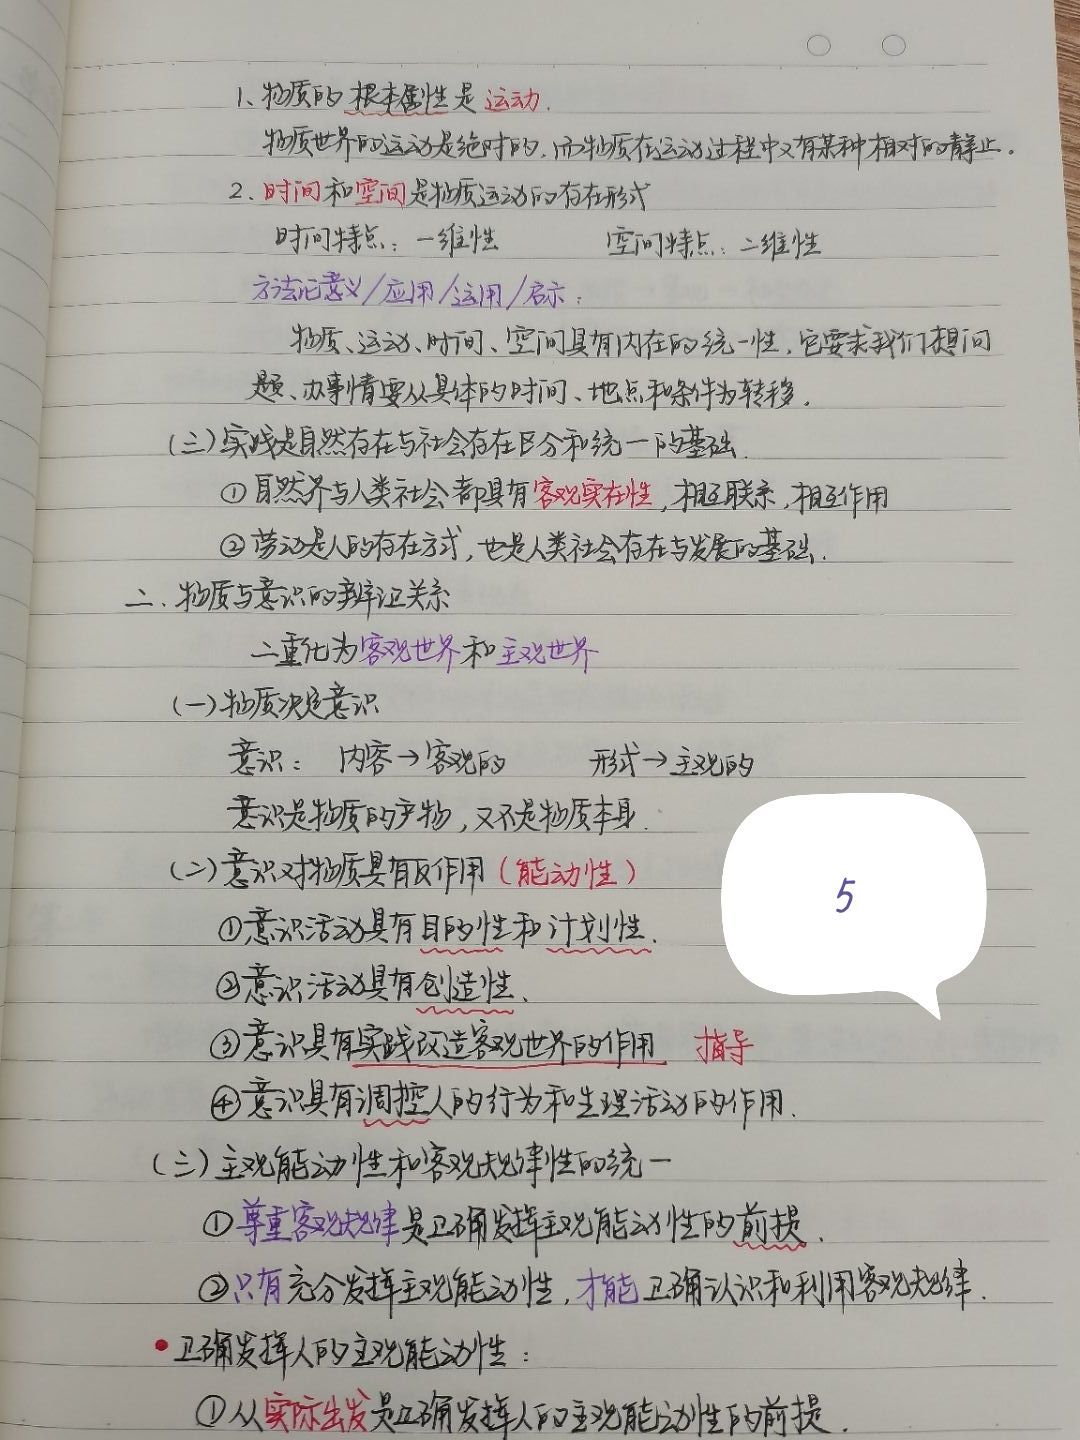 1、物质的根本属性是运动.
物质世界的运动是绝对的,而物质在运动过程中又有某种相对的静止。
2. 时间和空间是物质运动的存在形式
时间特点：一维性 空间特点：二维性
方法论意义/应用/运用/启示：
物质、运动、时间、空间具有内在的统一性，它要求我们想问
题、办事情要以具体的时间、地点和条件为转移.
(三)实践是自然存在与社会存在区分和统一的基础.
①自然界与人类社会都具有客观实在性,相互联系,相互作用
②劳动是人的存在方式,也是人类社会存在与发展的基础.
二.物质与意识的辩证关系
二重化为客观世界和主观世界
(一)物质决定意识
意识: 内容→客观的 形式→主观的
意识是物质的产物,又不是物质本身.
(二)意识对物质具有反作用(能动性)
①意识活动具有目的性和计划性.
②意识活动具有创造性.
5
③意识具有实践改造客观世界的作用 指导
④意识具有调控人的行为和生理活动的作用.
(三)主观能动性和客观规律性的统一
①尊重客观规律是正确发挥主观能动性的前提.
②只有充分发挥主观能动性,才能正确认识和利用客观规律.
•正确发挥人的主观能动性:
①从实际出发是正确发挥人的主观能动性的前提.